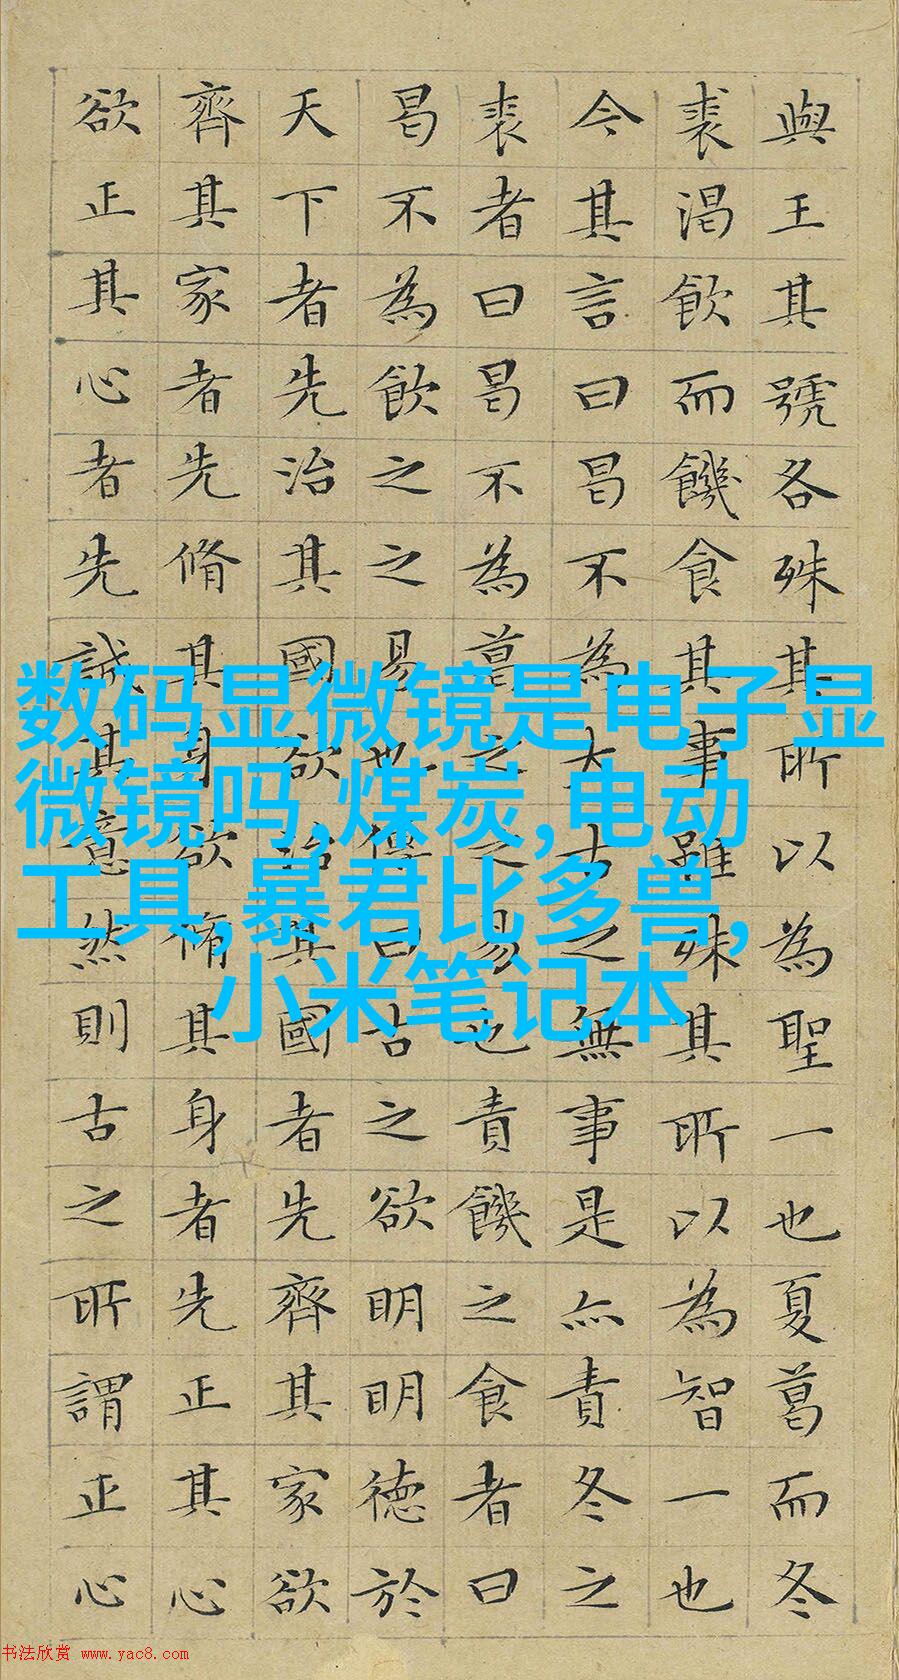 與王其號各殊其所以為聖一也夏葛而冬
裘渴飲而饑食其事雖殊其所以為智一也
今其言曰曷不為大古之無事是亦責冬之
裘者曰曷不為葛之之易也責饑之食者曰
曷不為飲之之易也傳曰古之欲明明德於
天下者先治其國欲治其國者先齊其家欲
齊其家者先脩其身欲脩其身者先正其心
欲正其心者先誠其意然則古之所謂正心
数码显微镜是电子显
微镜吗,煤炭,电动
工具,暴君比多兽,
小米笔记本
书法欣赏 www.yac8.com